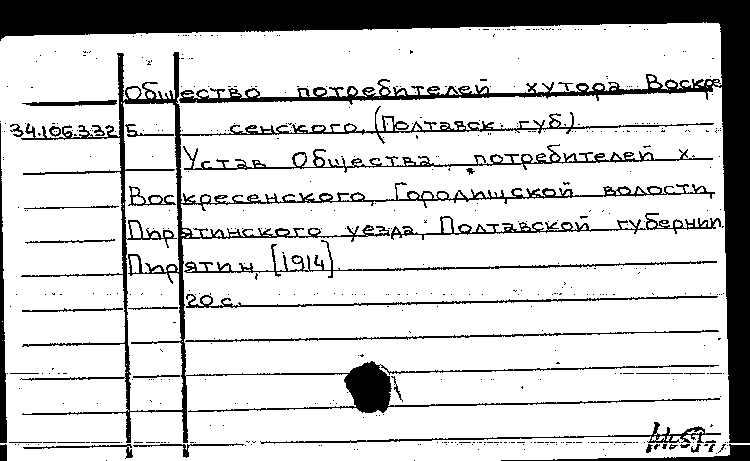 Общество потребителей хутора Воскре
34.106.332 Б. сенского, (Полтавск. губ.)
Устав Общества потребителей х.
Воскресенского, Городищской волости,
Пирятинского уезда, Полтавской губернии.
Пирятин, [1914].
20 с.